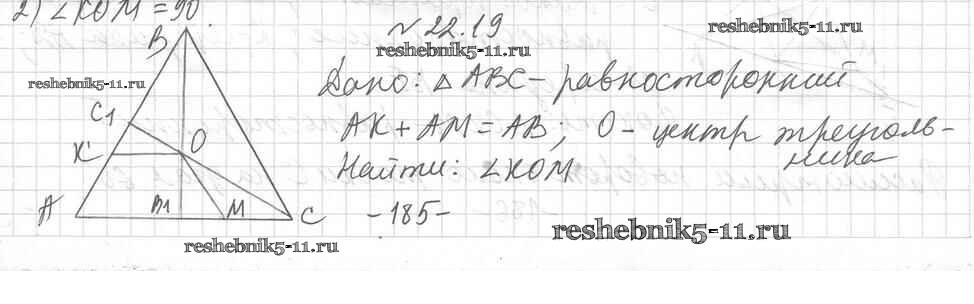 2) ∠KOM = 90.
№ 22.19
reshebnik5-11.ru
reshebnik5-11.ru
reshebnik5-11.ru
Дано: △ABC - равносторонний
AK + AM = AB; O - центр треуголь-
ника
Найти: ∠KOM
- 185 -
B
C1
K
O
A
B1
M
C
reshebnik5-11.ru
reshebnik5-11.ru